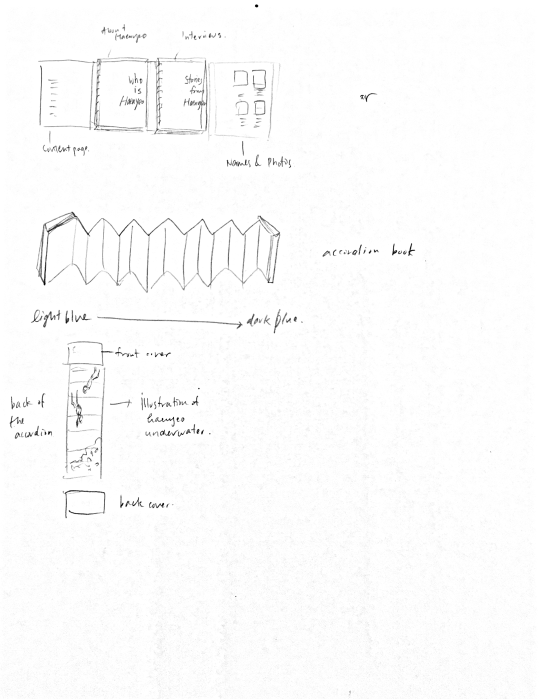 About Haenyeo
Interviews.
Who is Haenyeo
Stories from Haenyeo
or
Content page.
Names & Photos
accordion book
light blue → dark blue.
front cover
back of the accordion
illustration of haenyeo underwater.
back cover.